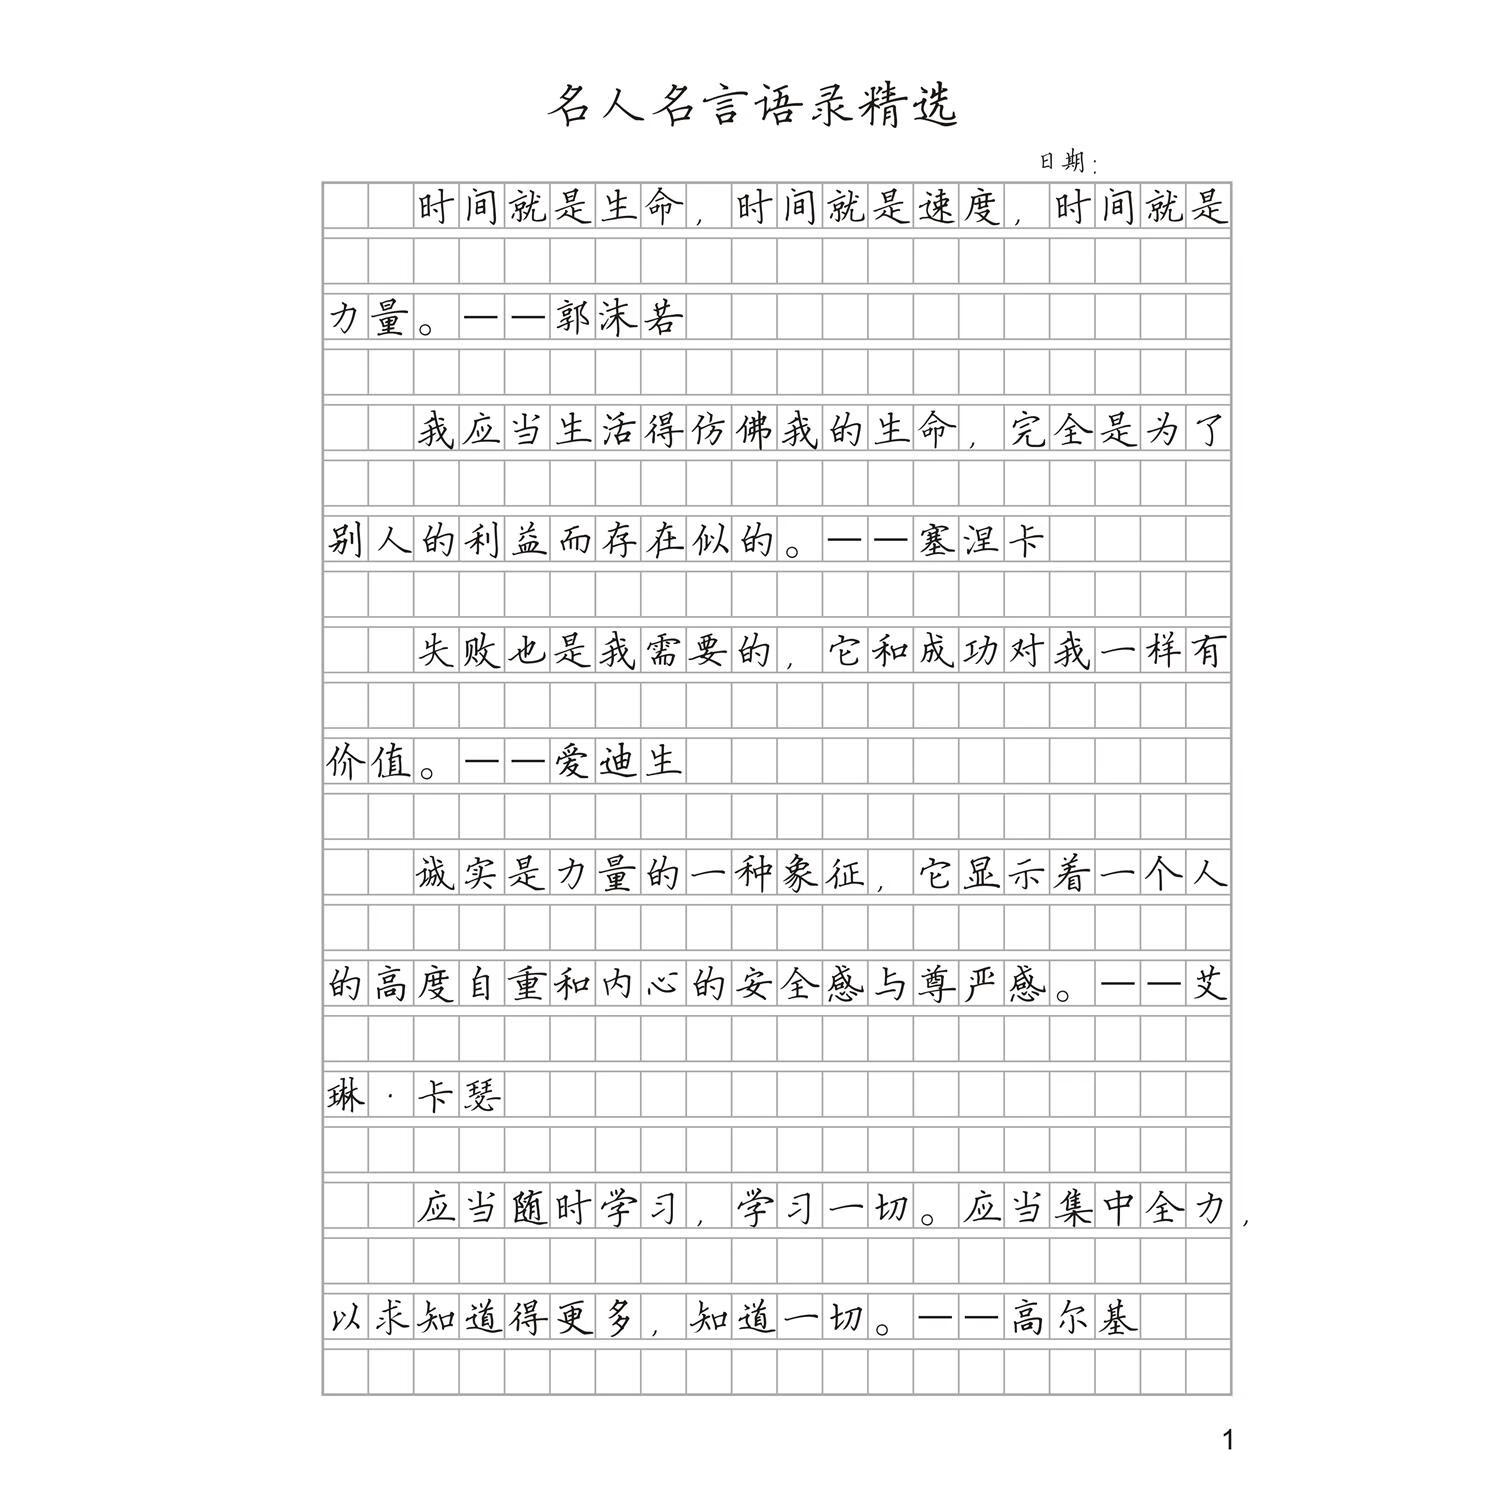 名人名言语录精选
日期:
时间就是生命,时间就是速度,时间就是
力量。——郭沫若
我应当生活得仿佛我的生命,完全是为了
别人的利益而存在似的。——塞涅卡
失败也是我需要的,它和成功对我一样有
价值。——爱迪生
诚实是力量的一种象征,它显示着一个人
的高度自重和内心的安全感与尊严感。——艾
琳·卡瑟
应当随时学习,学习一切。应当集中全力,
以求知道得更多,知道一切。——高尔基
1